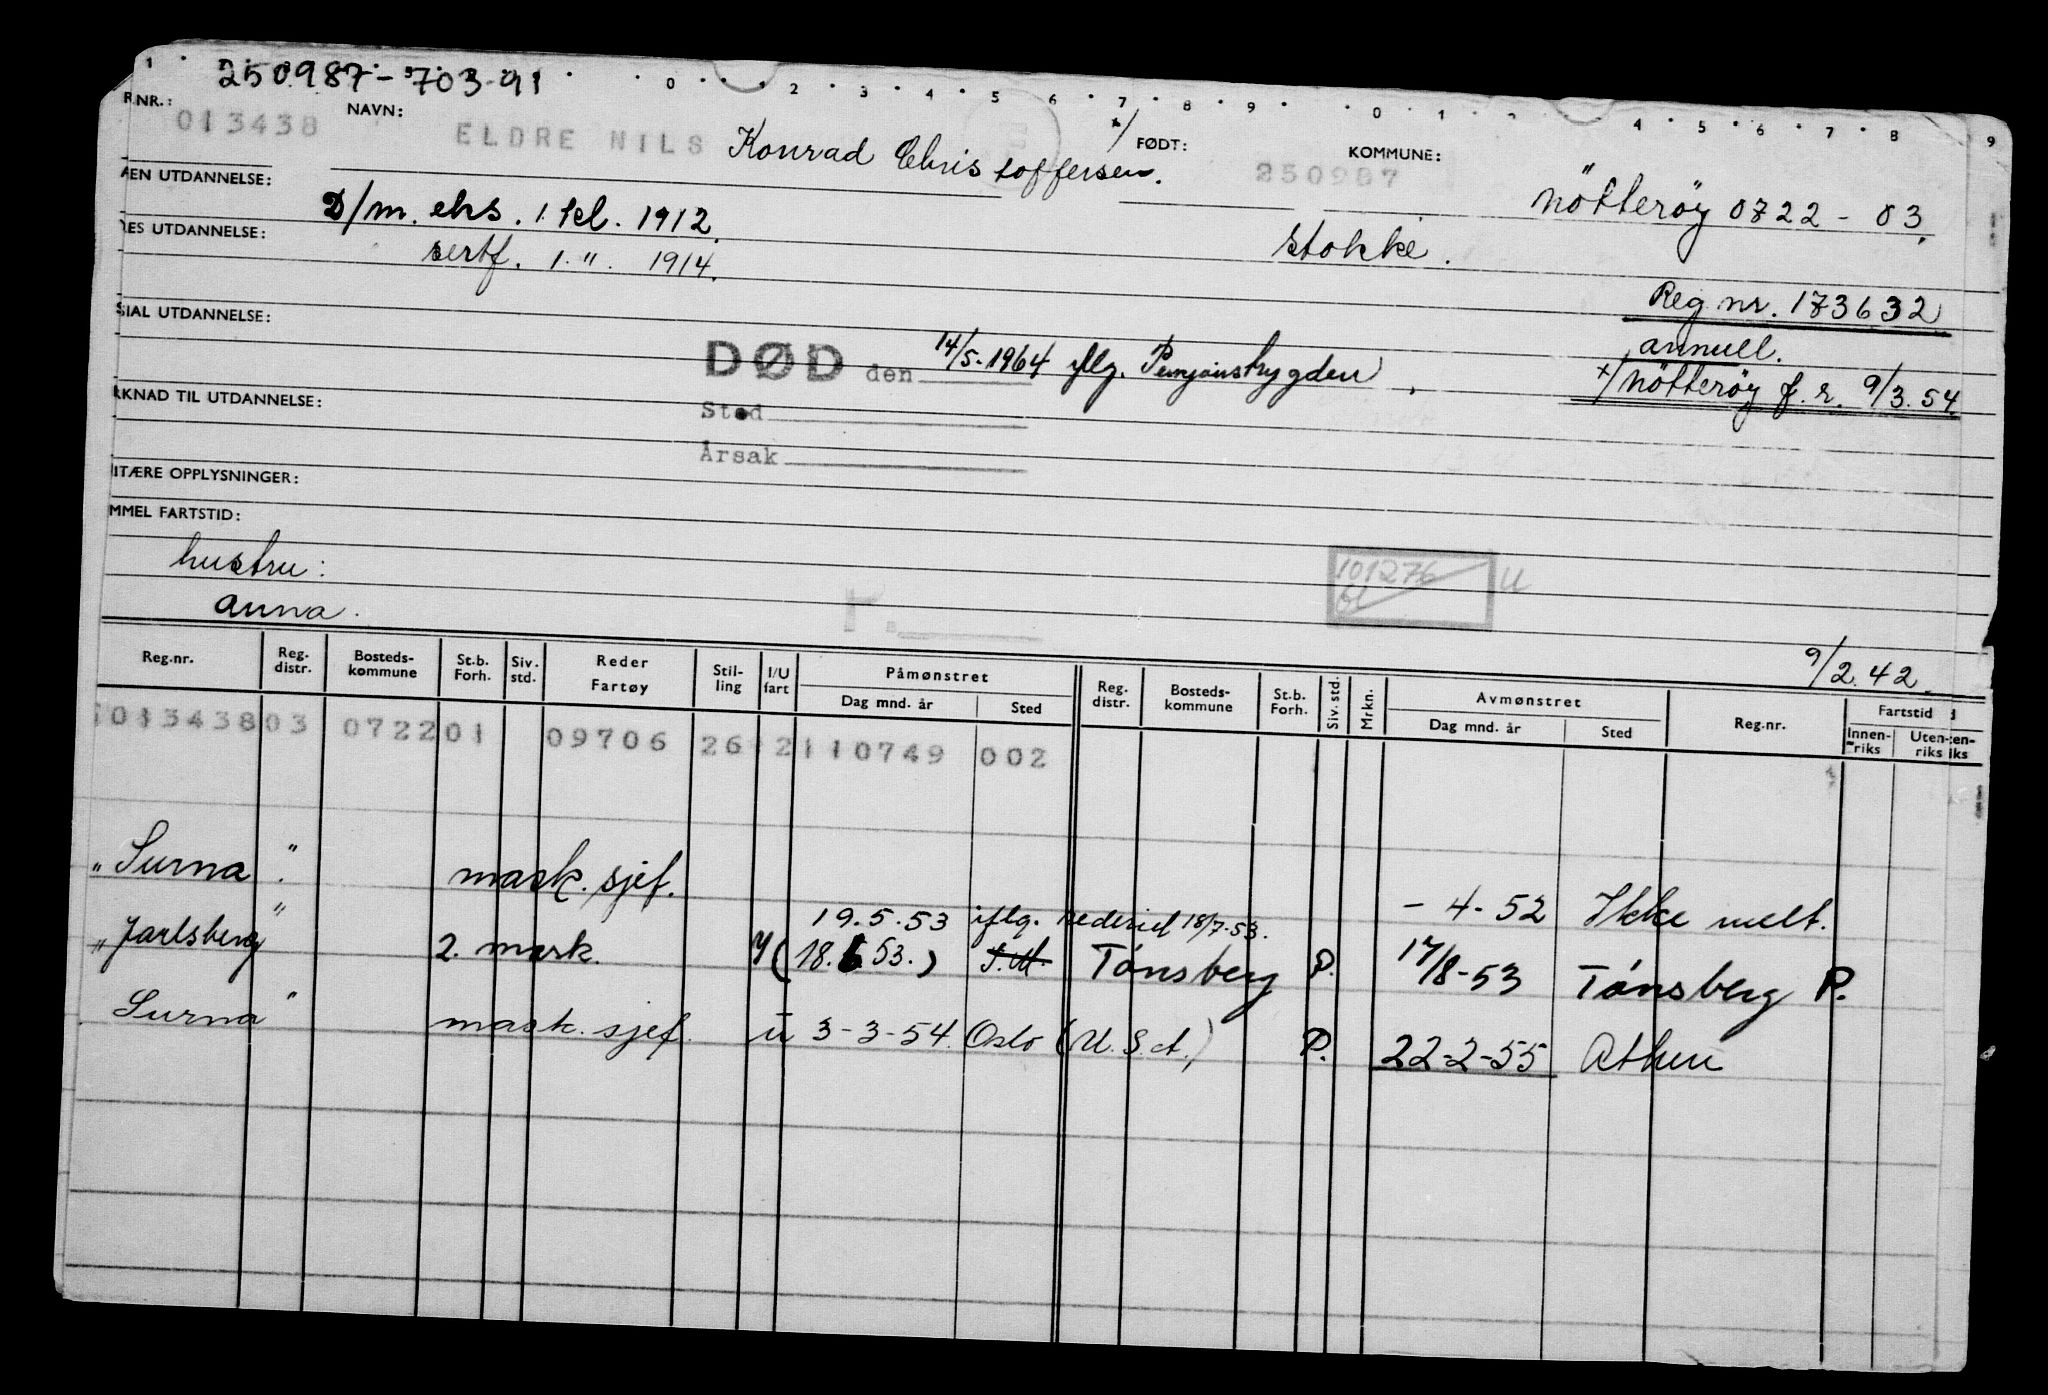 250987-703-91
1 0 2 3 4 5 6 7 8 9 0 1 4 5 6 7 8 9
R.NR.: 013438 NAVN: ELDRE NILS Konrad Christoffersen. x/ FØDT: 250987 KOMMUNE: Nötteröy 0722-03.
EN UTDANNELSE: D/m. eks. 1. kl. 1912. Stokke.
ES UTDANNELSE: sertf. 1. " 1914.
Reg nr. 173632
SIAL UTDANNELSE: annull.
DØD den 14/5-1964 iflg. Pensjonstrygden.
x/ Nötteröy f. r. 9/3.54
RKNAD TIL UTDANNELSE: Sted
Årsak
ITÆRE OPPLYSNINGER:
MMEL FARTSTID:
hustru:
Anna.
101276 U
9/2.42.
Reg.nr. Reg. distr. Bosteds-kommune St.b. Forh. Siv. std. Reder Fartøy Stil-ling I/U fart Påmønstret Dag mnd. år Sted Reg. distr. Bosteds-kommune St.b. Forh. Siv. std. Mrkn. Avmønstret Dag mnd. år Sted Reg.nr. Fartstid Innen-riks Uten-riks
013438 03 0722 01 09706 26 2 110749 002
"Surna". mask. sjef. - 4-52 Ikke melt.
19.5.53 iflg. rederiet 18/7-53.
"Jarlsberg" 2. mask. (18.6 53.) Tønsberg P. 17/8-53 Tønsberg P.
Surna" mask. sjef. u 3-3-54. Oslo (U.S.A.) P. 22-2-55 Athen